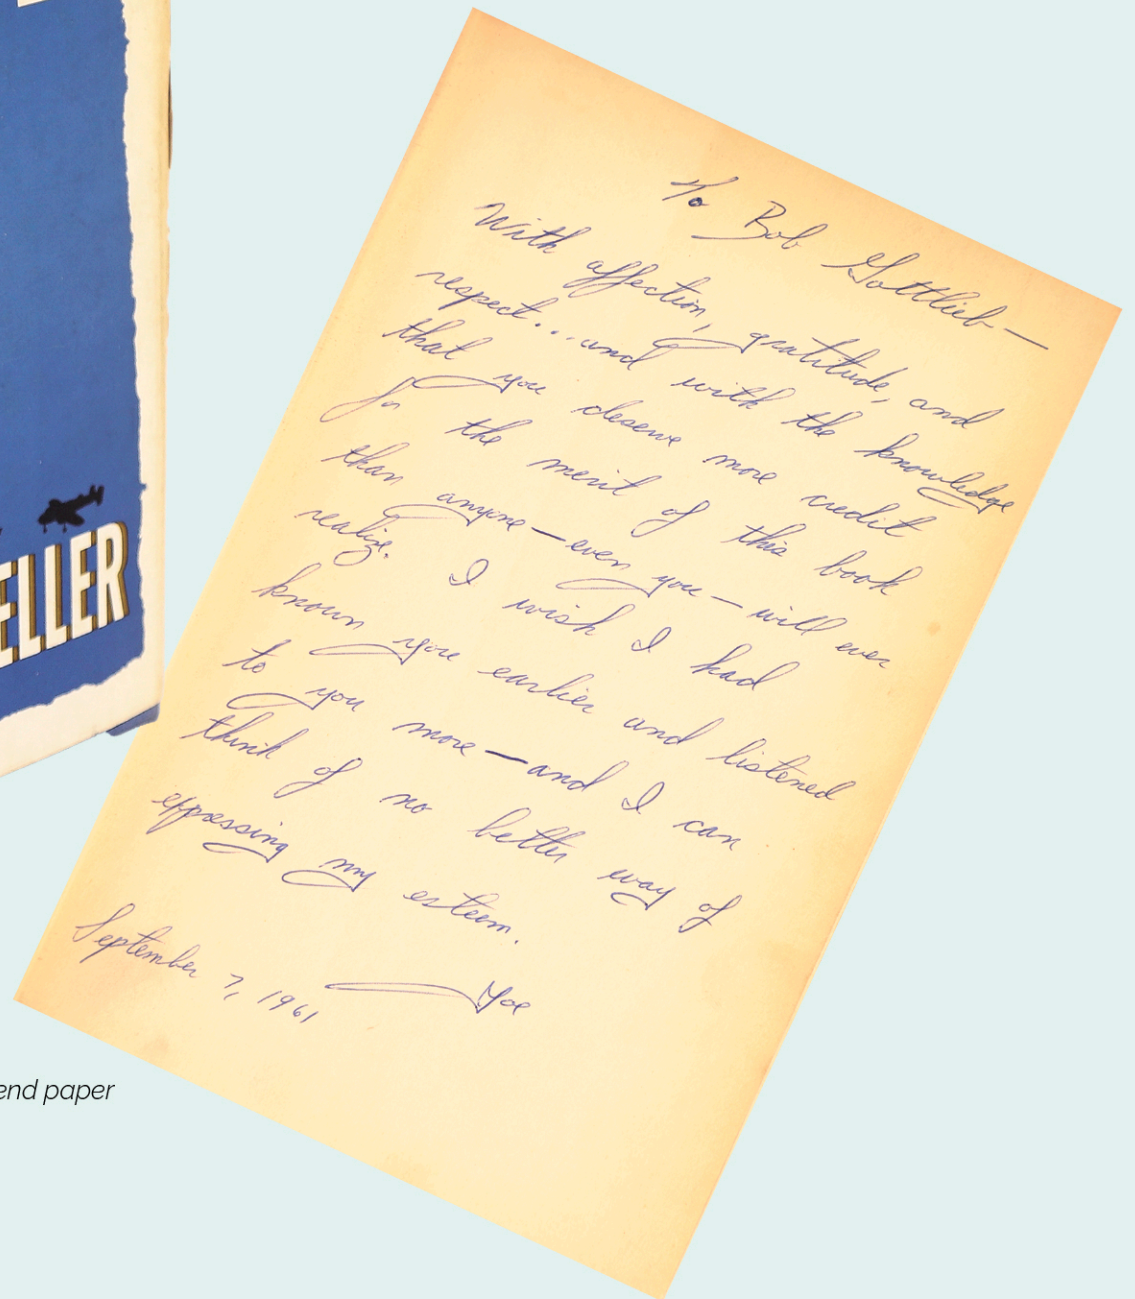 ELLER
To Bob Gottlieb—
With affection, gratitude, and
respect... and with the knowledge
that you deserve more credit
for the merit of this book
than anyone—even you—will ever
realize. I wish I had
known you earlier and listened
to you more—and I can
think of no better way of
expressing my esteem.
—Joe
September 7, 1961
end paper